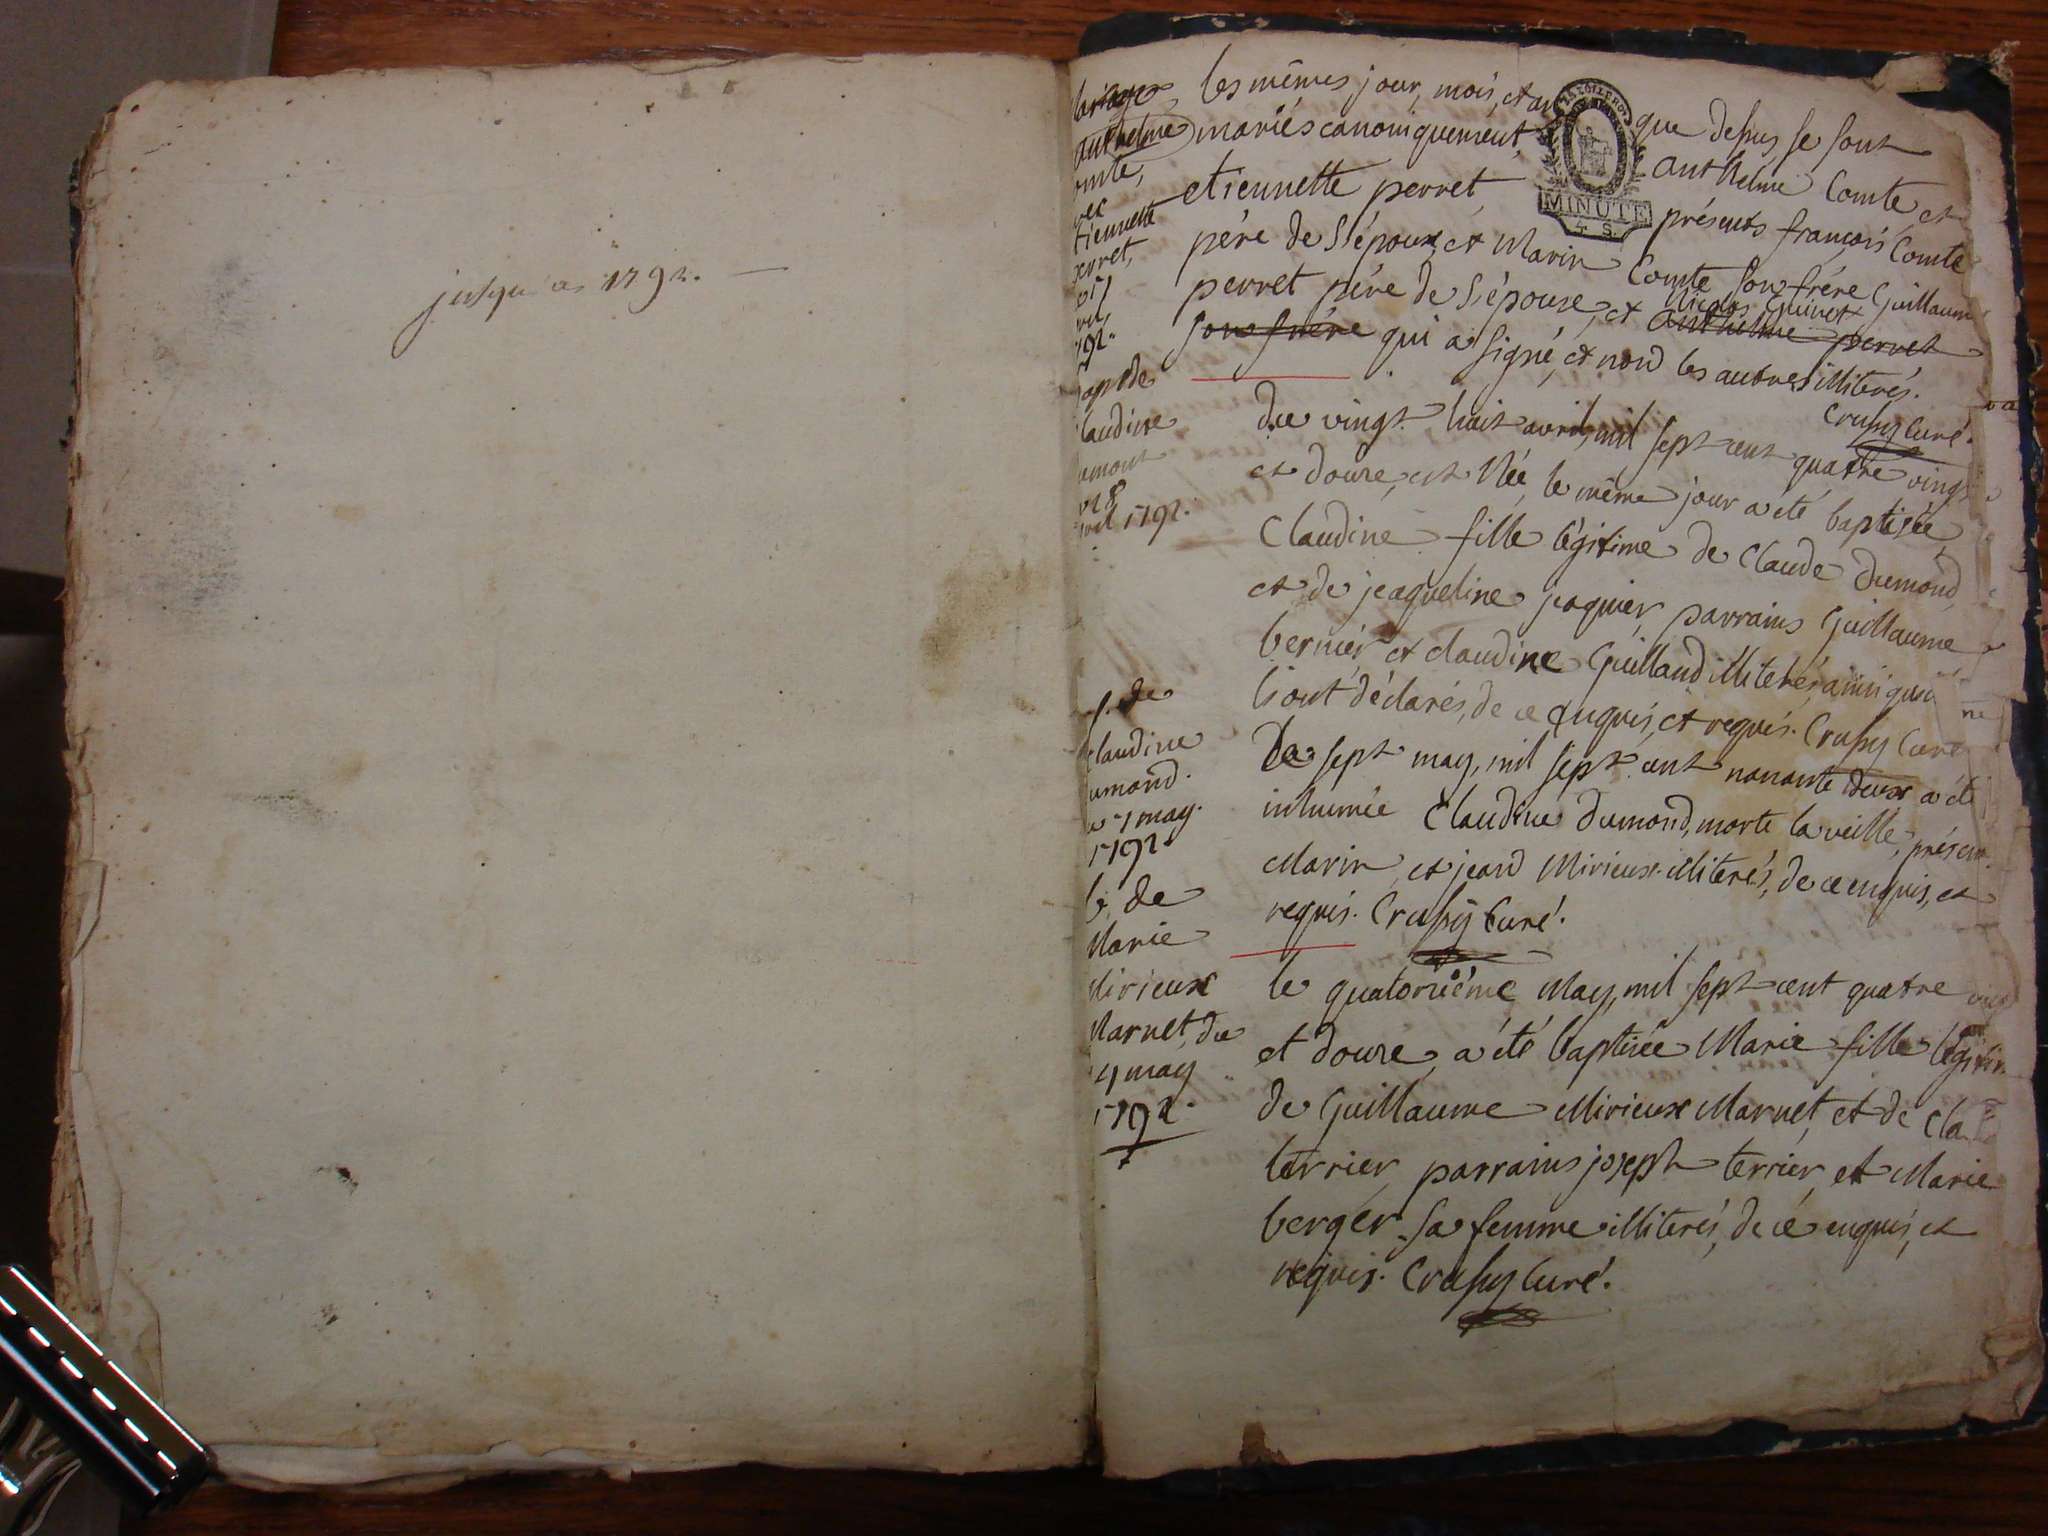 jusqu'a 1792.
Mariage
anthelme
comte,
avec
etiennette
perret,
avril,
1792.
bapt de
claudine
dumont
du 28
avril 1792.
S. de
claudine
dumond.
du 7 may.
1792
b. de
Marie
Mirieux
Marnet, du
14 may
1792.
les mêmes jour, mois, et an que dessus se sont
mariés canoniquement, anthelme Comte, et
etiennette perret, présents françois Comte
père de S. époux, et Marin Comte son frère Guillaume
perret père de S. épouse, et Nicolas Guinet
anthelme perret
son frère qui a signé, et non les autres illiterés.
Crussy Curé.
MINUTE
4 S.
du vingt huit avril, mil sept cent quatre vingt
et douze, est Née, le même jour a été baptisée
Claudine fille légitime de Claude Dumond,
et de jeaqueline jaquier, parrains Guillaume
bernier et claudine Guilland illiterés, ainsi qu'
ils ont déclarés, de ce enquis, et requis. Crussy Curé
Le sept may, mil sept cent nonante deux a été
inhumée Claudine Dumond, morte la veille, présents
Marin, et jean Mirieux illiterés, de ce enquis, et
requis. Crussy Curé.
le quatorzième May, mil sept cent quatre vingt
et douze, a été baptisée Marie fille légitime
de Guillaume Mirieux Marnet, et de Cla
terrier, parrains joseph terrier, et Marie
berger sa femme illiterés, de ce enquis, et
requis. Crussy Curé.